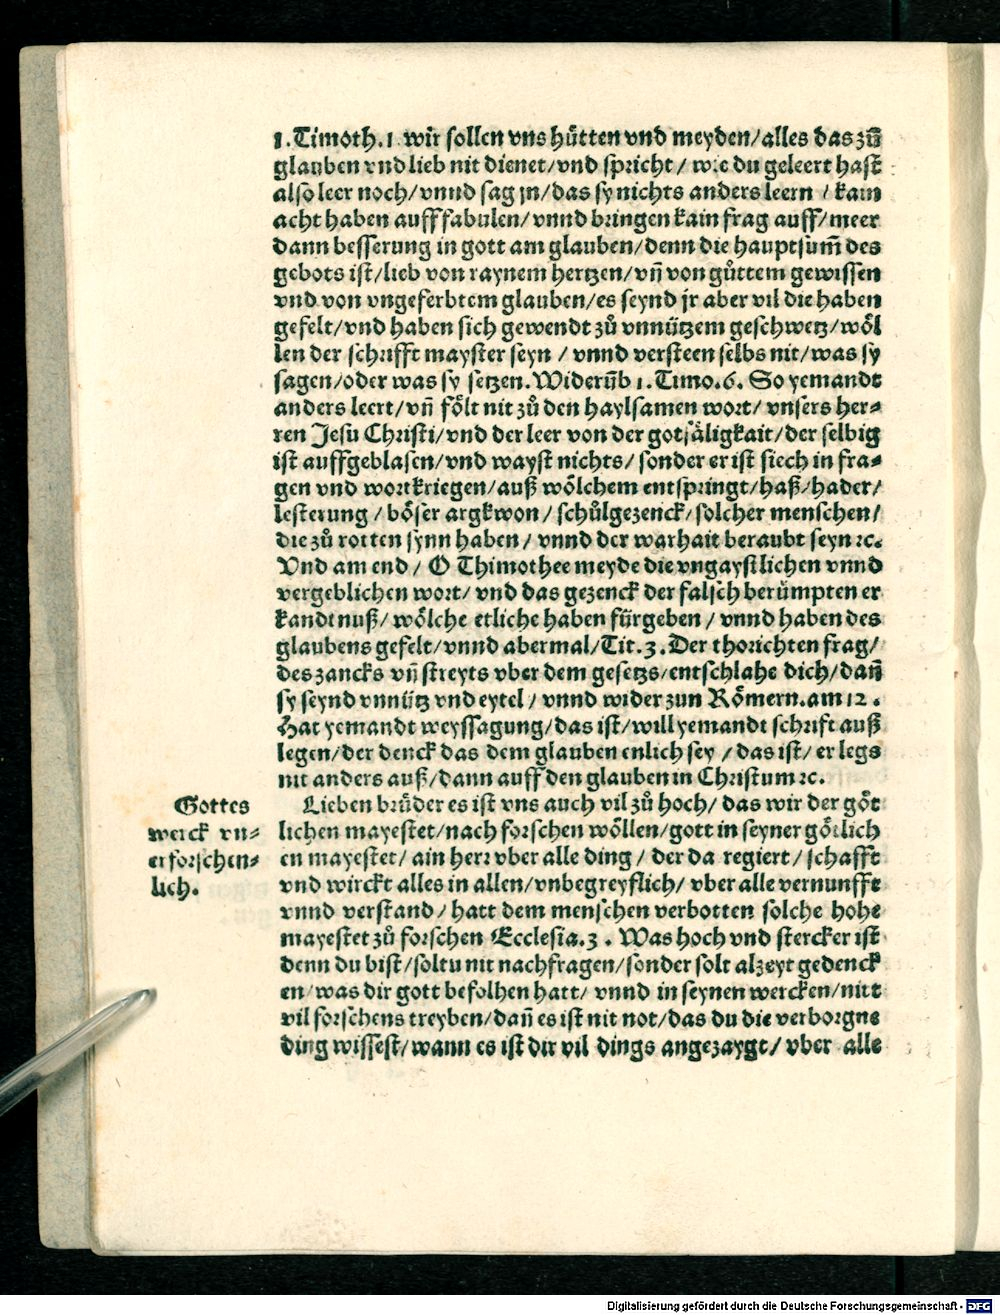 1.Timoth.1 wir sollen vns hůtten vnd meyden/alles das zů̄
glauben vnd lieb nit dienet/vnd spricht/ wie du geleert hast
also leer noch/vnnd sag jn/das sy nichts anders leern / kain
acht haben auff fabulen/vnnd bringen kain frag auff/meer
dann besserung in gott am glauben/denn die hauptsum̄ des
gebots ist/lieb von raynem hertzen/vn̄ von gůttem gewissen
vnd von vngeferbtem glauben/es seynd jr aber vil die haben
gefelt/vnd haben sich gewendt zů vnnützem geschwetz/wöl
len der schrifft mayster seyn / vnnd versteen selbs nit/was sy
sagen/oder was sy setzen. Widerūb 1. Timo.6. So yemandt
anders leert/vn̄ fölt nit zů den haylsamen wort/ vnsers her⸗
ren Jesu Christi/vnd der leer von der gotsäligkait/der selbig
ist auffgeblasen/vnd wayst nichts/ sonder er ist siech in fra⸗
gen vnd wortkriegen/auß wölchem entspringt/haß/hader/
lesterung / böser argkwon/ schůlgezenck/solcher menschen/
die zů rotten synn haben / vnnd der warhait beraubt seyn ꝛc.
Vnd am end / O Thimothee meyde die vngaystlichen vnnd
vergeblichen wort/ vnd das gezenck der falsch berümpten er
kandtnuß/ wölche etliche haben fürgeben / vnnd haben des
glaubens gefelt/vnnd abermal/Tit.3. Der thorichten frag/
des zancks vn̄ streyts vber dem gesetzs/entschlahe dich/dan̄
sy seynd vnnütz vnd eytel / vnnd wider zun Römern.am 12.
Hat yemandt weyssagung/das ist/will yemandt schrift auß
legen/der denck das dem glauben enlich sey / das ist/ er legs
nit anders auß/dann auff den glauben in Christum ꝛc.
Gottes
werck vn⸗
erforschen⸗
lich.
Lieben brüder es ist vns auch vil zů hoch/ das wir der göt
lichen mayestet/nach forschen wöllen/gott in seyner götlich
en mayestet/ ain herr vber alle ding / der da regiert/ schafft
vnd wirckt alles in allen/vnbegreyflich/ vber alle vernunfft
vnnd verstand/ hatt dem menschen verbotten solche hohe
mayestet zů forschen Ecclesia.3 . Was hoch vnd stercker ist
denn du bist/soltu nit nachfragen/sonder solt alzeyt gedenck
en/was dir gott befolhen hatt/ vnnd in seynen wercken/nitt
vil forschens treyben/dan̄ es ist nit not/das du die verborgne
ding wissest/wann es ist dir vil dings angezaygt/ vber alle
Digitalisierung gefördert durch die Deutsche Forschungsgemeinschaft - DFG